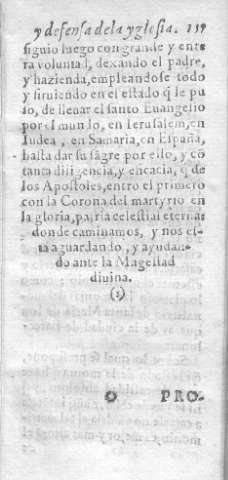 y defensa de la yglesia. 139
siguio luego con grande y ente
ra voluntad, dexando el padre,
y hazienda, empleandose todo
y siruiendo en el estado q̃ le pu
so, de lleuar el santo Euangelio
por el mundo, en Ierusalem, en
Iudea, en Samaria, en España,
hasta dar su sãgre por ello, y cõ
tanta diligencia, y eficacia, q̃ de
los Apostoles, entro el primero
con la Corona del martyrio en
la gloria, patria celestial eterna:
donde caminamos, y nos es-
ta aguardando, y ayudan-
do ante la Magestad
diuina.
(?)
O PRO-